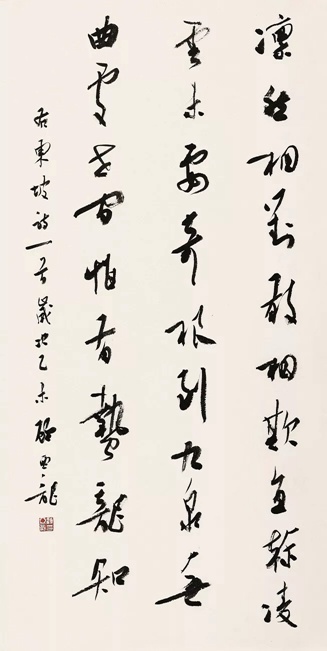 凜然相對敢相欺直幹凌
雲未要奇根到九泉無
曲處世間惟有蟄龍知
右東坡詩一首歲在乙未